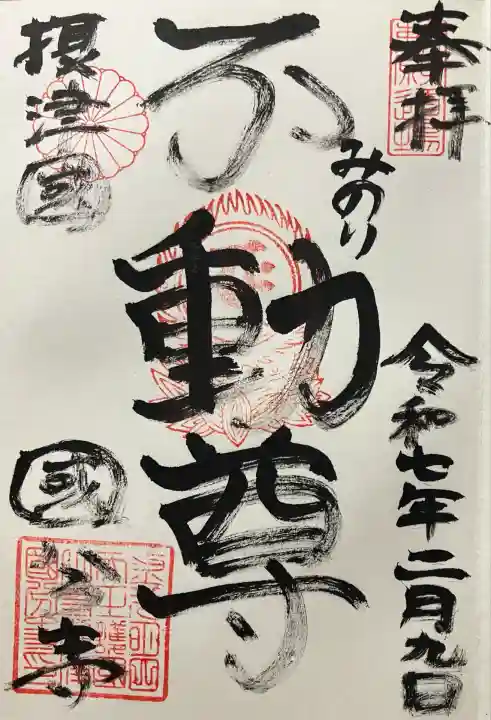 奉拝
令和七年二月九日
みのり
不動尊
摂津國
國分寺